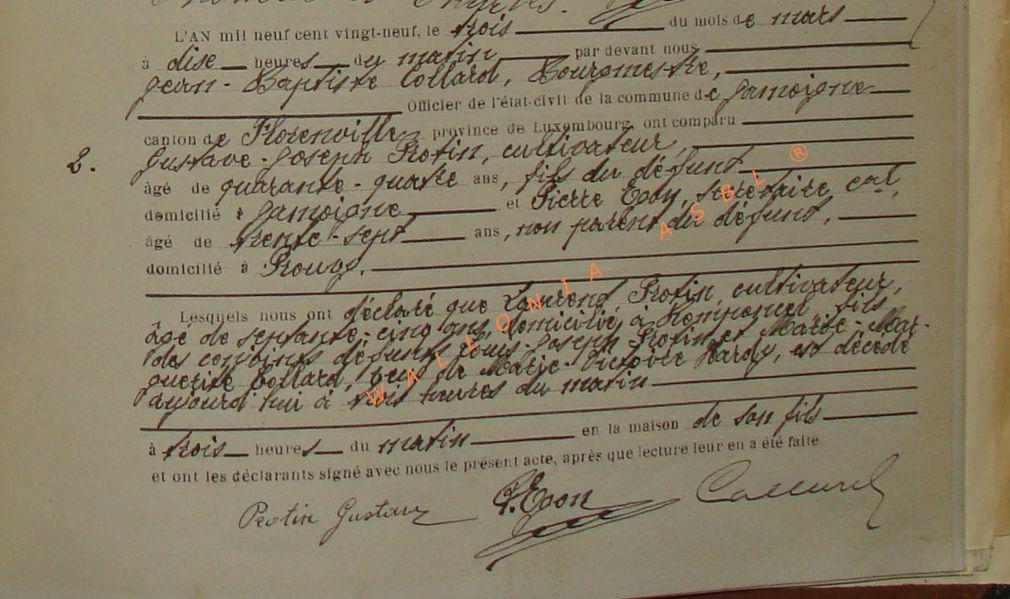 L'AN mil neuf cent vingt-neuf, le trois du mois de mars
à dise heures du matin par devant nous
Jean-Baptiste Collard, Bourgmestre,
Officier de l'état-civil de la commune de Jamoigne
canton de Florenville province de Luxembourg, ont comparu
2. Gustave-Joseph Protin, cultivateur,
âgé de quarante-quatre ans, fils du défunt
domicilié à Jamoigne et Pierre Evon, secrétaire cal,
âgé de trente-sept ans, non parent du défunt,
domicilié à Prouvy.
Lesquels nous ont déclaré que Laurent Protin, cultivateur,
âgé de septante-cinq ans, domicilié à fils
des conjoints défunts Louis-Joseph Protin et Marie-Mar-
guerite Collard, veuf de Marie-Victoire Hardy, est décédé
aujourd'hui à trois heures du matin
à trois heures du matin en la maison de son fils
et ont les déclarants signé avec nous le présent acte, après que lecture leur en a été faite.
Protin Gustave P. Evon Collard
WALLONIA ASBL ®